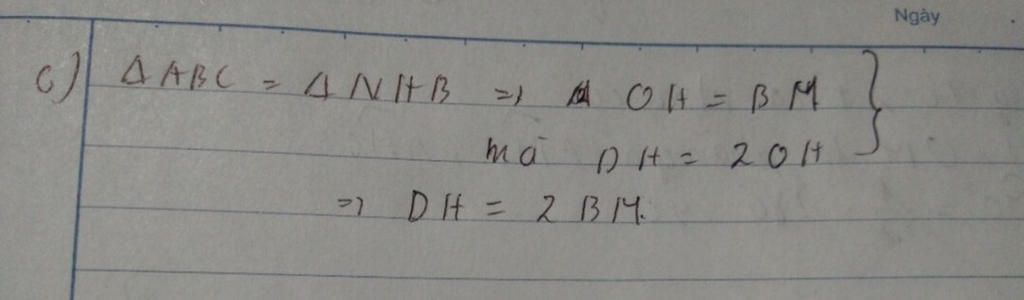 Ngày
c) Δ ABC = Δ NHB => OH = BM
mà DH = 2 OH
=> DH = 2 BM.